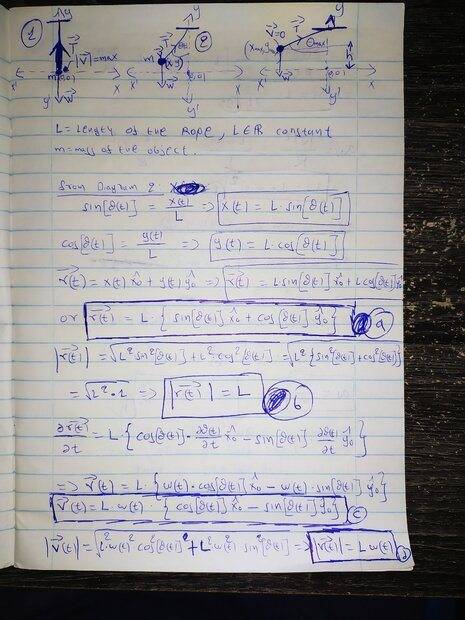 1 y T |v|=max m (0,0) x' x y' w
2 y T θ(t) m (x,y) w (0,0) x' x y'
y V=0 T θmax (xmax, w (0,0) h x' x y'
L = Length of the Rope, L∈ℝ constant
m = mass of the object.
from Diagram 2:
sin[θ(t)] = x(t)/L => x(t) = L·sin[θ(t)]
cos[θ(t)] = y(t)/L => y(t) = L·cos[θ(t)]
r(t) = x(t) x̂₀ + y(t) ŷ₀ => r(t) = L sin[θ(t)] x̂₀ + L cos[θ(t)] ŷ₀
or r(t) = L·{ sin[θ(t)] x̂₀ + cos[θ(t)] ŷ₀ } a
|r(t)| = √L² sin²[θ(t)] + L² cos²[θ(t)] = √L² {sin²[θ(t)] + cos²[θ(t)]}
= √L²·1 => |r(t)| = L b
∂r(t)/∂t = L·{ cos[θ(t)]·∂θ(t)/∂t x̂₀ − sin[θ(t)] ∂θ(t)/∂t ŷ₀ }
=> v(t) = L·{ ω(t)·cos[θ(t)] x̂₀ − ω(t)·sin[θ(t)] ŷ₀ }
v(t) = L·ω(t)·{ cos[θ(t)] x̂₀ − sin[θ(t)] ŷ₀ } c
|v(t)| = √L²·ω(t)² cos²[θ(t)] + L²·ω(t)² sin²[θ(t)] => |v(t)| = L ω(t)